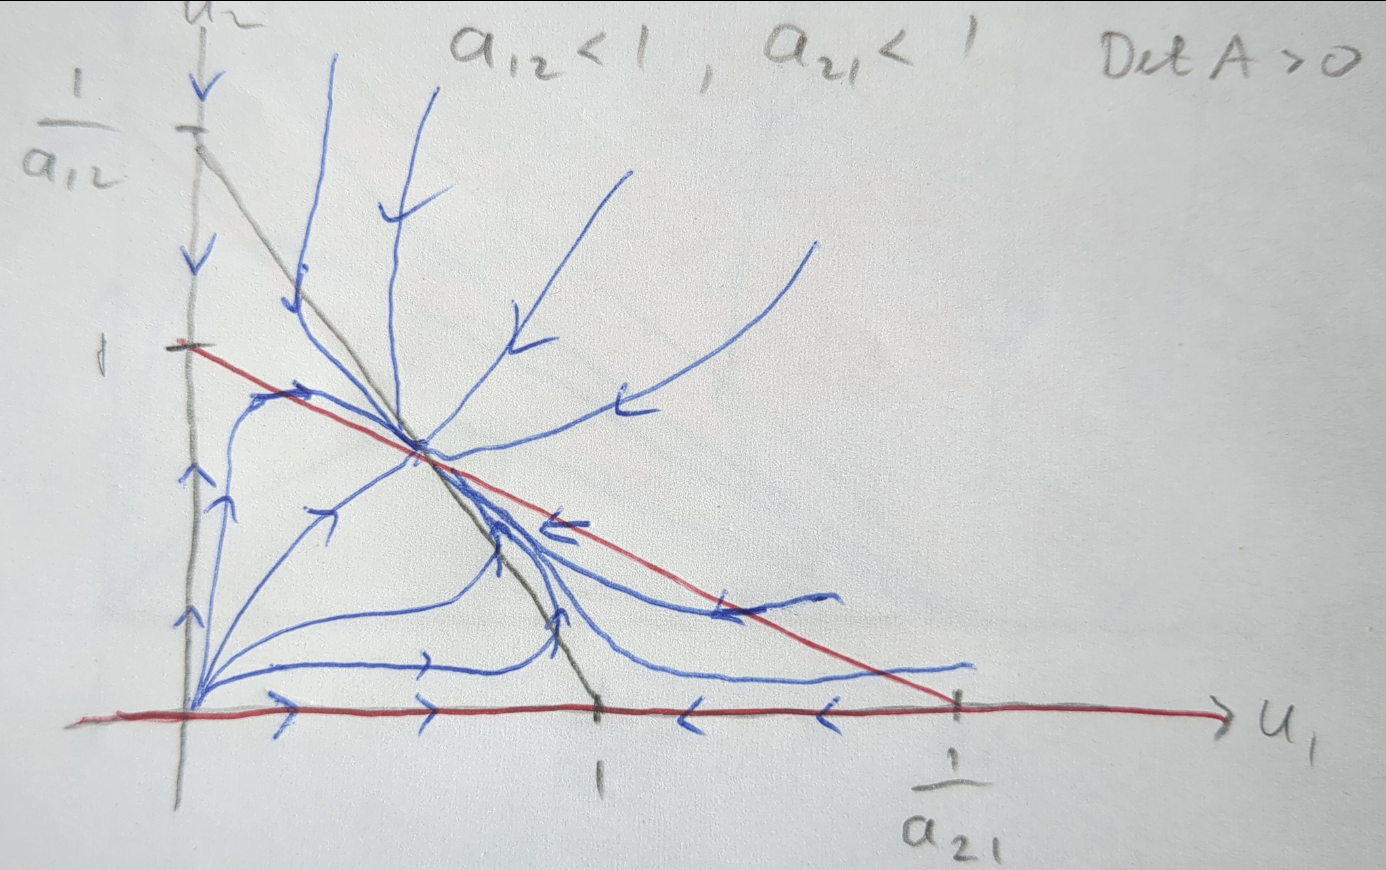 u₂
a₁₂ < 1 , a₂₁ < 1
Det A > 0
1
a₁₂
1
u₁
1
1
a₂₁